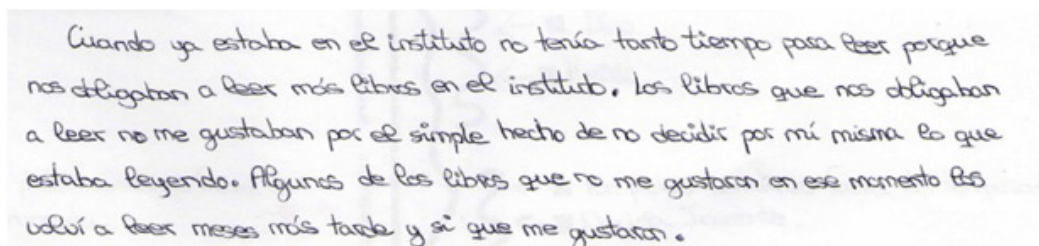 Cuando ya estaba en el instituto no tenía tanto tiempo para leer porque
nos obligaban a leer más libros en el instituto. Los libros que nos obligaban
a leer no me gustaban por el simple hecho de no decidir por mí misma lo que
estaba leyendo. Algunos de los libros que no me gustaron en ese momento los
volví a leer meses más tarde y si que me gustaron.